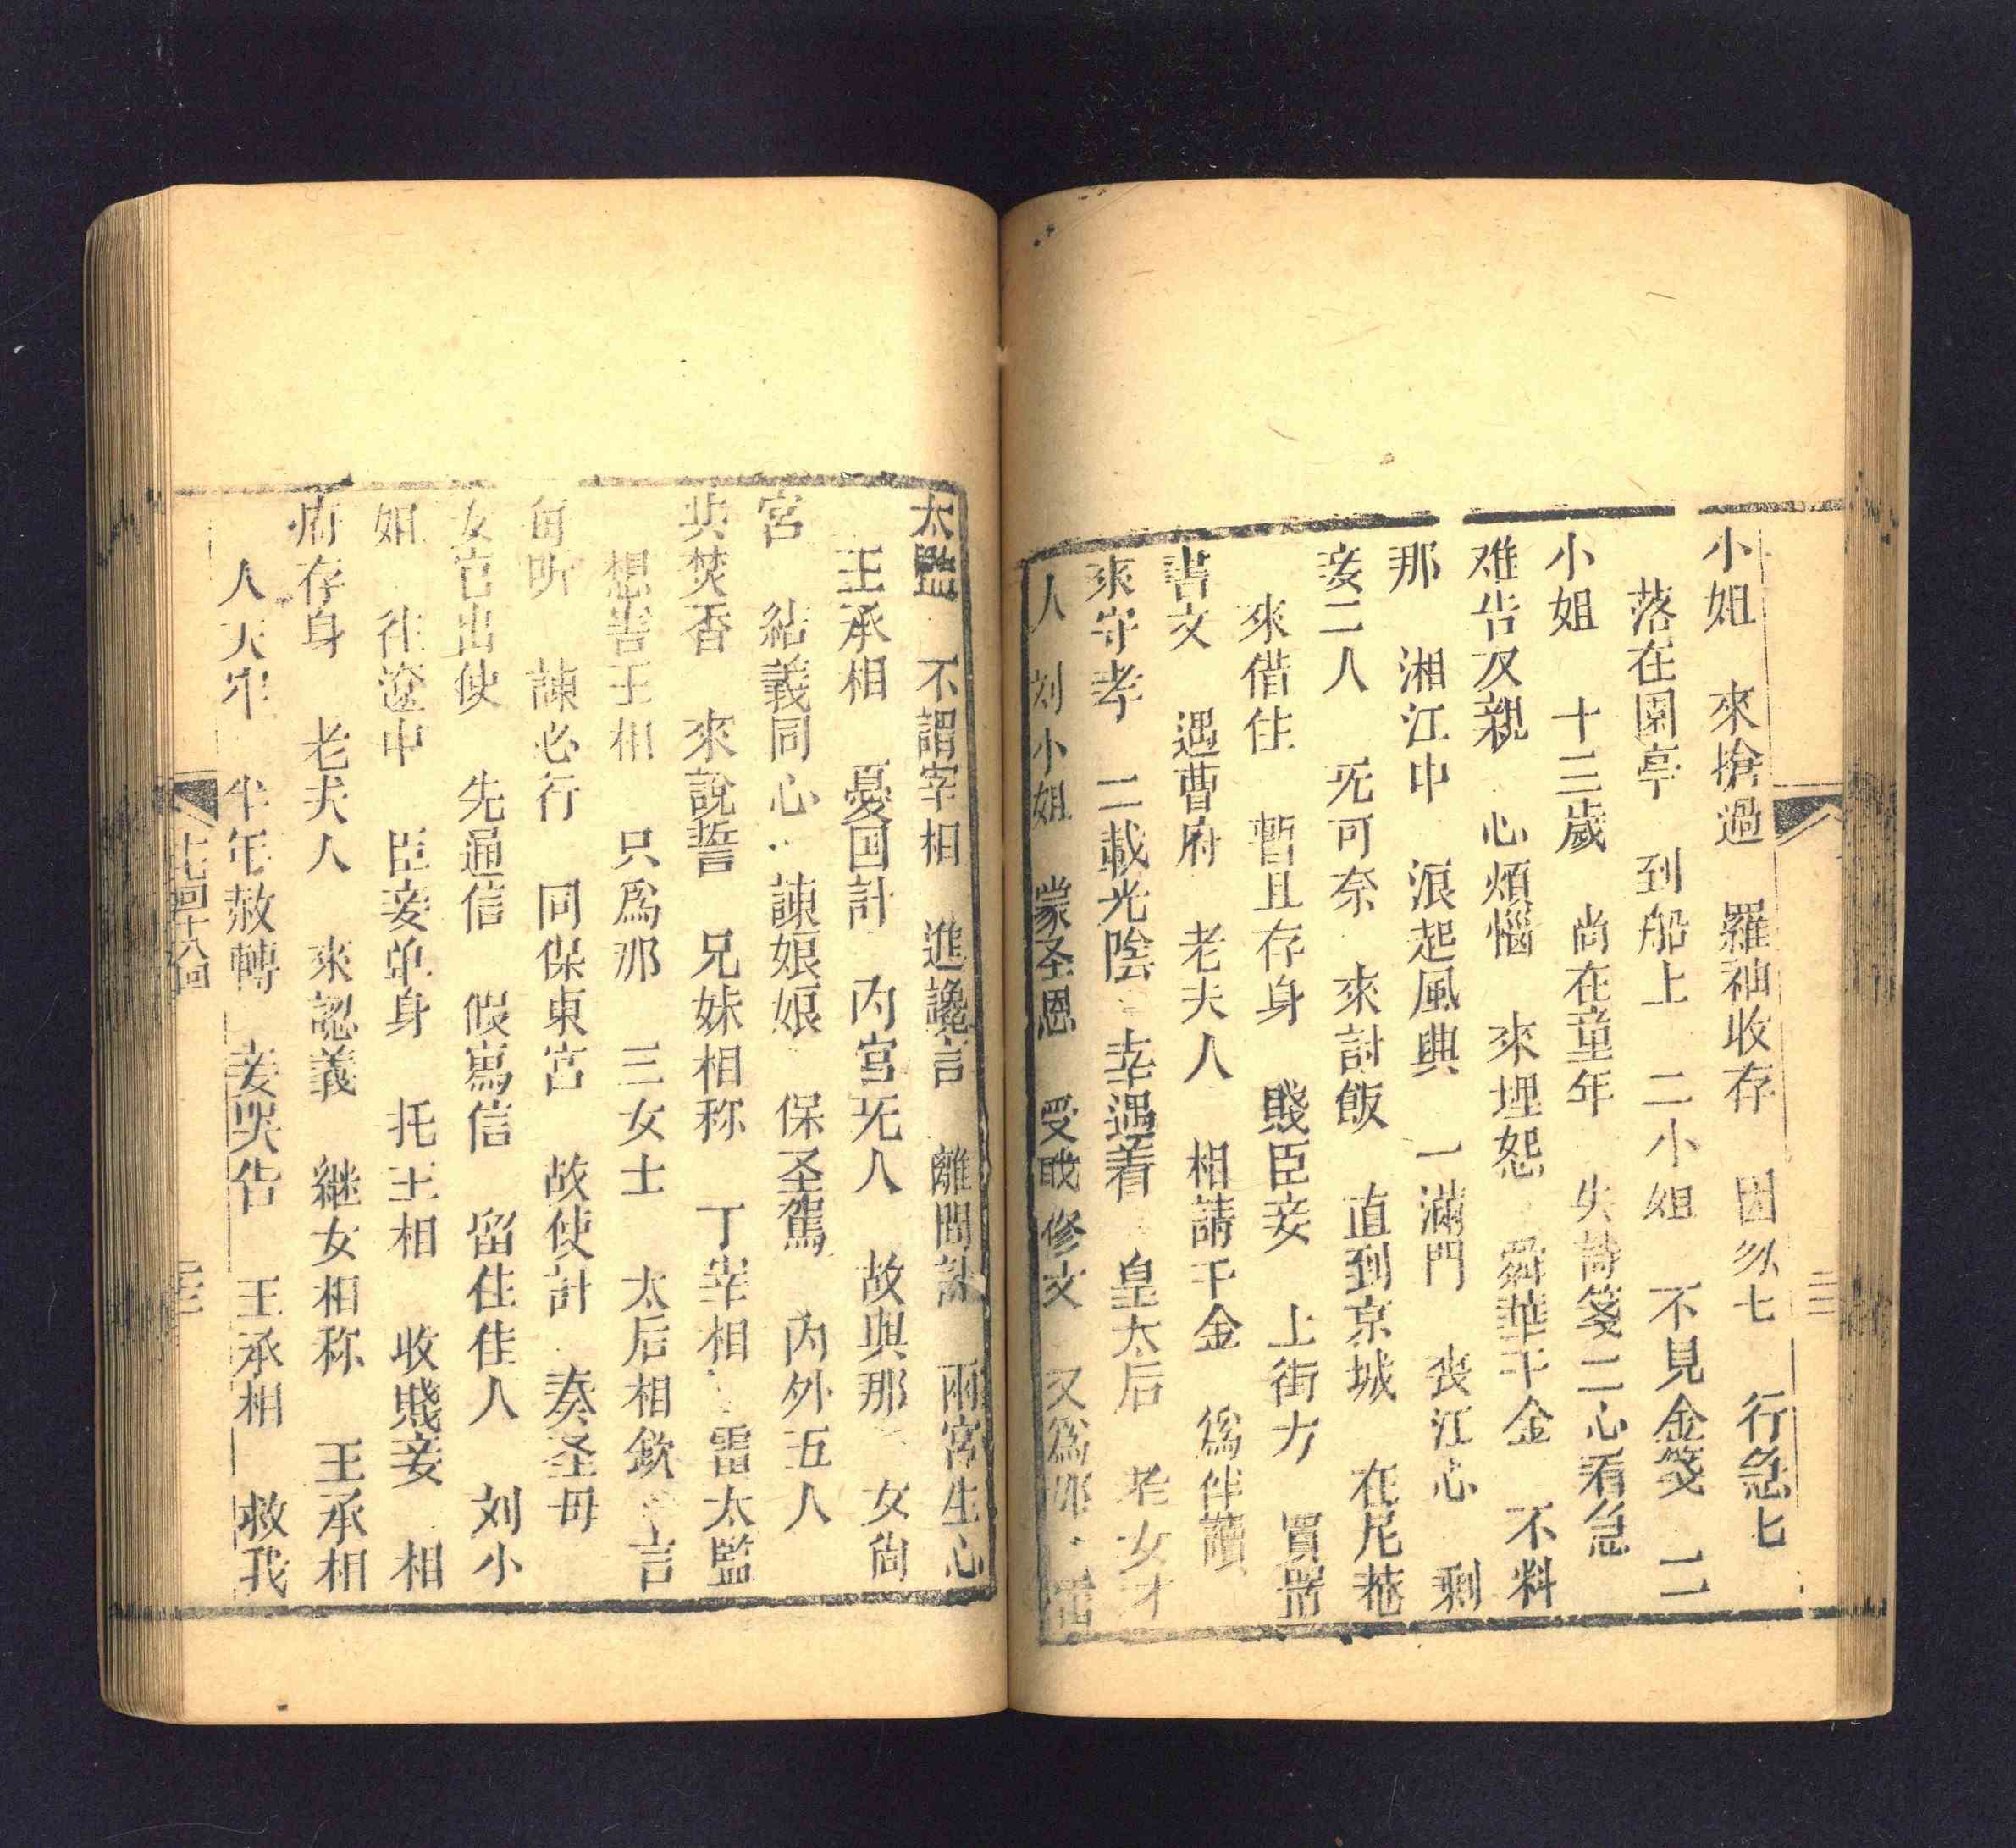 小姐 來搶過 羅袖收存 因么七 行急七
落在園亭 到船上 二小姐 不見金箋 二
小姐 十三歲 尚在童年 失詩箋二心看急
难告双親 心煩惱 來埋怨 舜華千金 不料
那 湘江中 浪起風興 一滿門 丧江心 剩
妾二人 旡可奈 來討飯 直到京城 在尼菴
來借住 暫且存身 賤臣妾 上街方 買
書文 遇曹府 老夫人 相請千金 為伴讀
來守孝 二載光陰 幸遇着 皇太后 老女才
人 刘小姐 蒙圣恩 受戝修文 又為那 雷
太監 不謂宰相 進讒言 離間計 兩宮生心
王承相 憂国計 內宮旡人 故與那 女尚
宮 結義同心 諫娘娘 保圣駕 內外五人
共焚香 來說誓 兄妹相称 丁宰相 雷太監
想害王相 只為那 三女士 太后相欽 言
旬听 諫必行 同保東宮 故使計 奏圣母
女官出使 先通信 假寫信 留住佳人 刘小
姐 往遼中 臣妾单身 托王相 收賤妾 相
府存身 老夫人 來認義 継女相称 王承相
人天牢 半年赦轉 妾哭告 王承相 救我
七回十八回